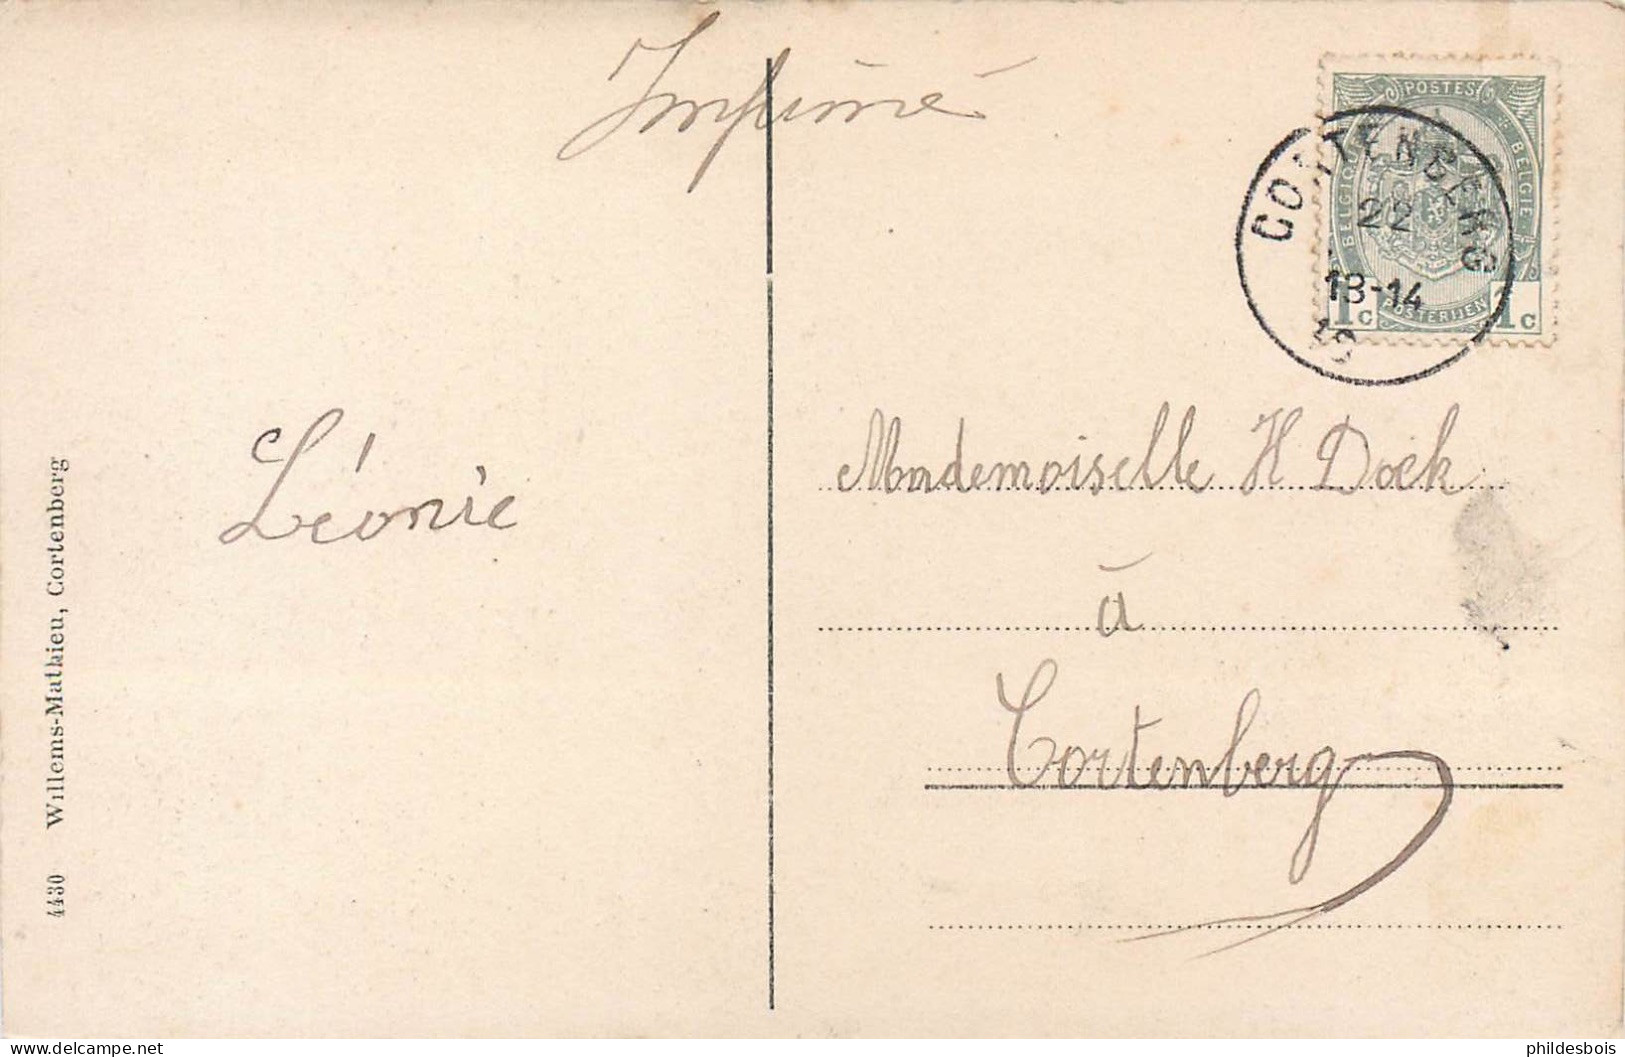 Imprimé
POSTES
BELGIQUE
BELGIE
POSTERIJEN
1c 1c
CORTENBERG
22
13-14
19
Léonie
Mademoiselle H Dock
à
Cortenberg
4430 Willems-Mathieu, Cortenberg
delcampe.net
phildesbois